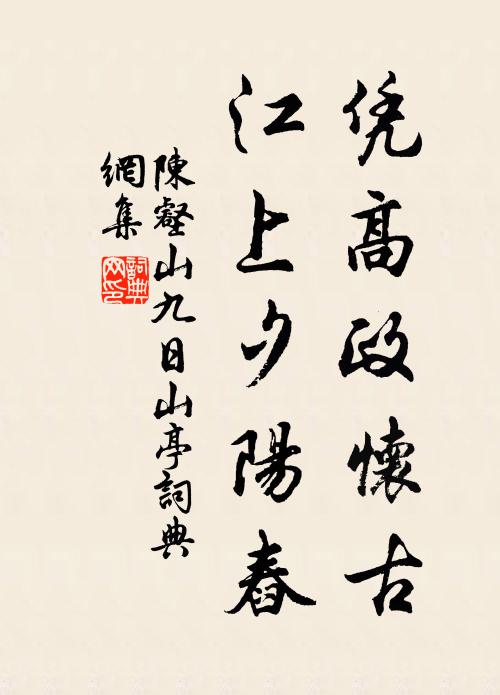 凭高政懷古
江上夕陽舂
陳壑山九日山亭詞典
網集
詞典
网印